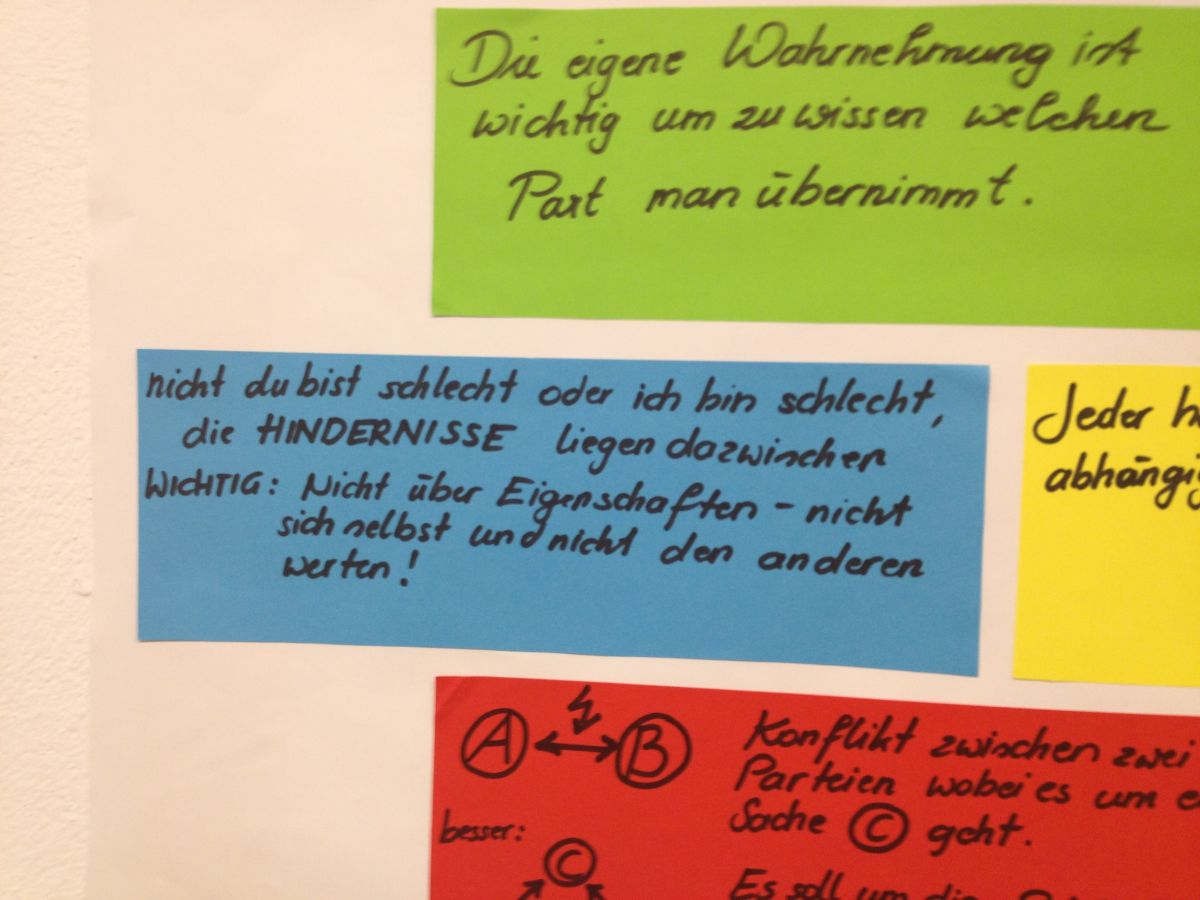 Die eigene Wahrnehmung ist
wichtig um zu wissen welchen
Part man übernimmt.
nicht du bist schlecht oder ich bin schlecht,
die HINDERNISSE liegen dazwischen
WICHTIG: Nicht über Eigenschaften - nicht
sich selbst und nicht den anderen
werten!
Jeder
abhängig
A B
Konflikt zwischen zwei
Parteien wobei es um
Sache C geht.
besser:
C
Es soll um die